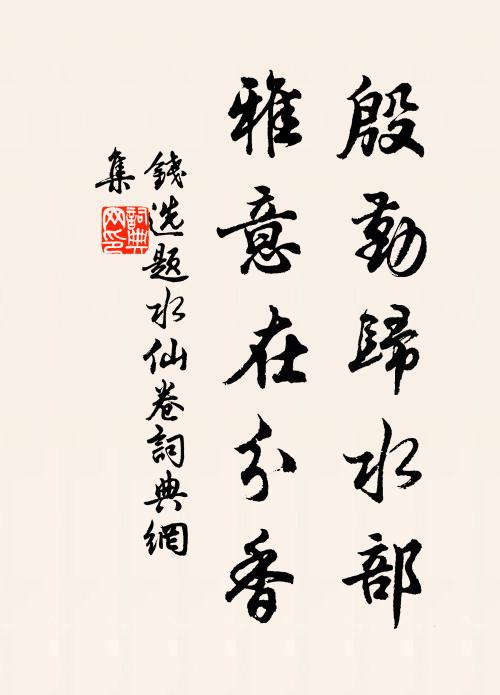 殷勤歸水部
雅意在分香
錢选题水仙卷詞典網
集
詞典网印